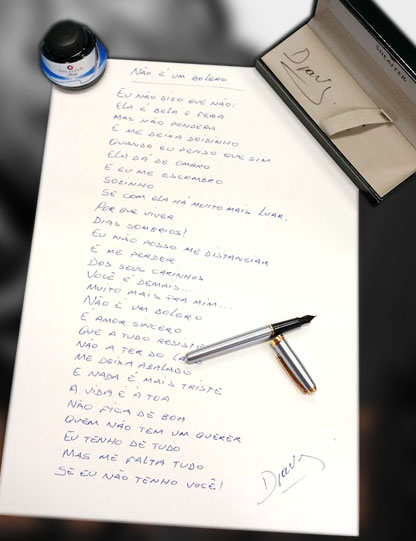 NÃO É UM BOLERO
EU NÃO DIGO QUE NÃO!
ELA É BELA E FERA
MAS NÃO PONDERA
E ME DEIXA DOIDINHO
QUANDO EU PENSO QUE SIM
ELA DÁ DE OMBRO
E EU ME ESCOMBRO
SOZINHO
SE COM ELA HÁ MUITO MAIS LUAR.
POR QUE VIVER
DIAS SOMBRIOS?
EU NÃO POSSO ME DISTANCIAR
E ME PERDER
DOS SEUS CARINHOS
VOCÊ É DEMAIS...
MUITO MAIS PRA MIM...
NÃO É UM BOLERO
É AMOR SINCERO
QUE A TUDO RESISTE
NÃO A TER DO
ME DEIXA ABALADO
E NADA É MAIS TRISTE
A VIDA É À TOA
NÃO FICA DE BOA
QUEM NÃO TEM UM QUERER
EU TENHO DE TUDO
MAS ME FALTA TUDO
SE EU NÃO TENHO VOCÊ!